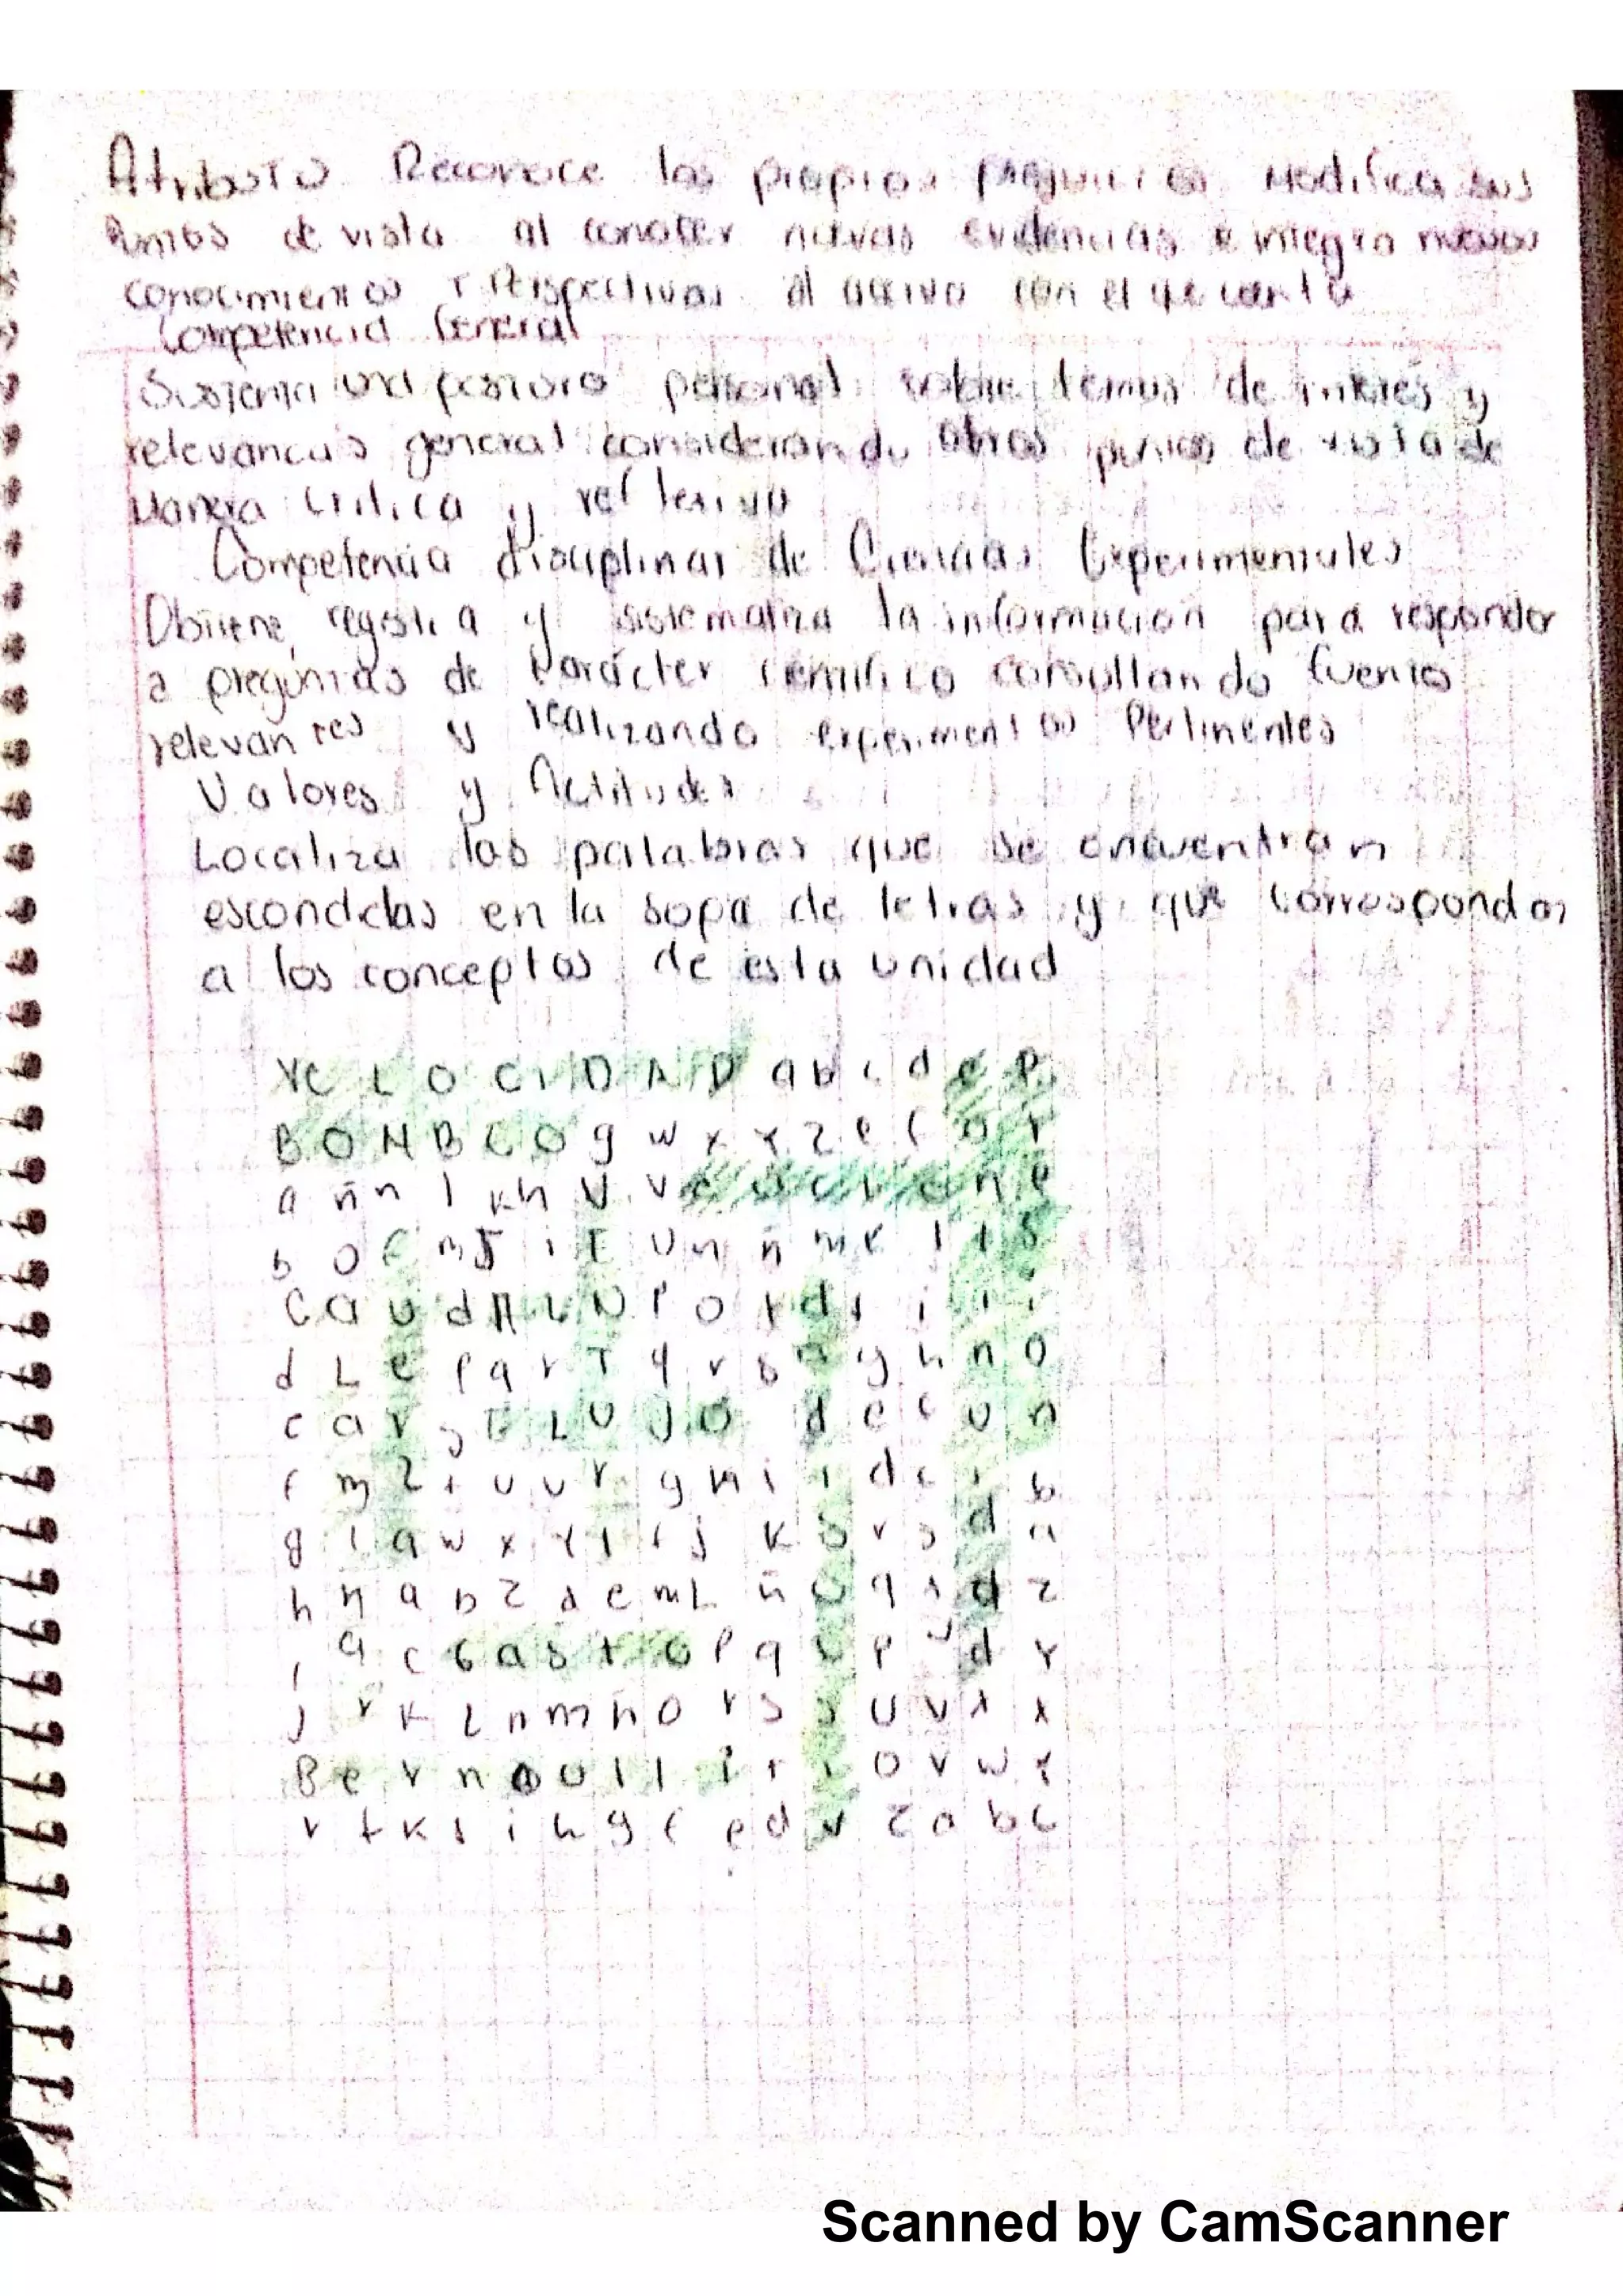 Atributo Reconoce los propios prejuicios Modifica sus
Puntos de vista al conocer nuevas evidencias e integra nuevos
conocimientos Y Perspectivas al acervo con el que cuenta
Competencia General
Sustenta una postura personal sobre temas de interés y
relevancias general considerando otros puntos de vista de
Manera critica y reflexiva
Competencia disciplinar de Ciencias Experimentales
Obtiene, registra y sistematiza la información para responder
a preguntas de carácter científico consultando fuentes
relevantes y realizando experimentos Pertinentes
Valores y Actitudes
Localiza las palabras que se encuentran
escondidas en la sopa de letras y que correspondan
a los conceptos de esta unidad
V E L O C I D A D a b c d e P
B O M B E O g w x Y z e f
a ñ n l k h U V
b o f m J i E U n ñ m k l
C a u d A L N P o
d L e P q r T q r s g h n o
c a r g F L U J O d e f u n
f m z t u v r g h i i d c i b
g l a w x Y j k s r s d a
h ñ a b z d e m L ñ q d z
q c G a s t o P q P d Y
j r k L n m ñ o r s u v x x
B e r n o u l l i r i o v w Y
r t k s i h g f e d z a b c
Scanned by CamScanner